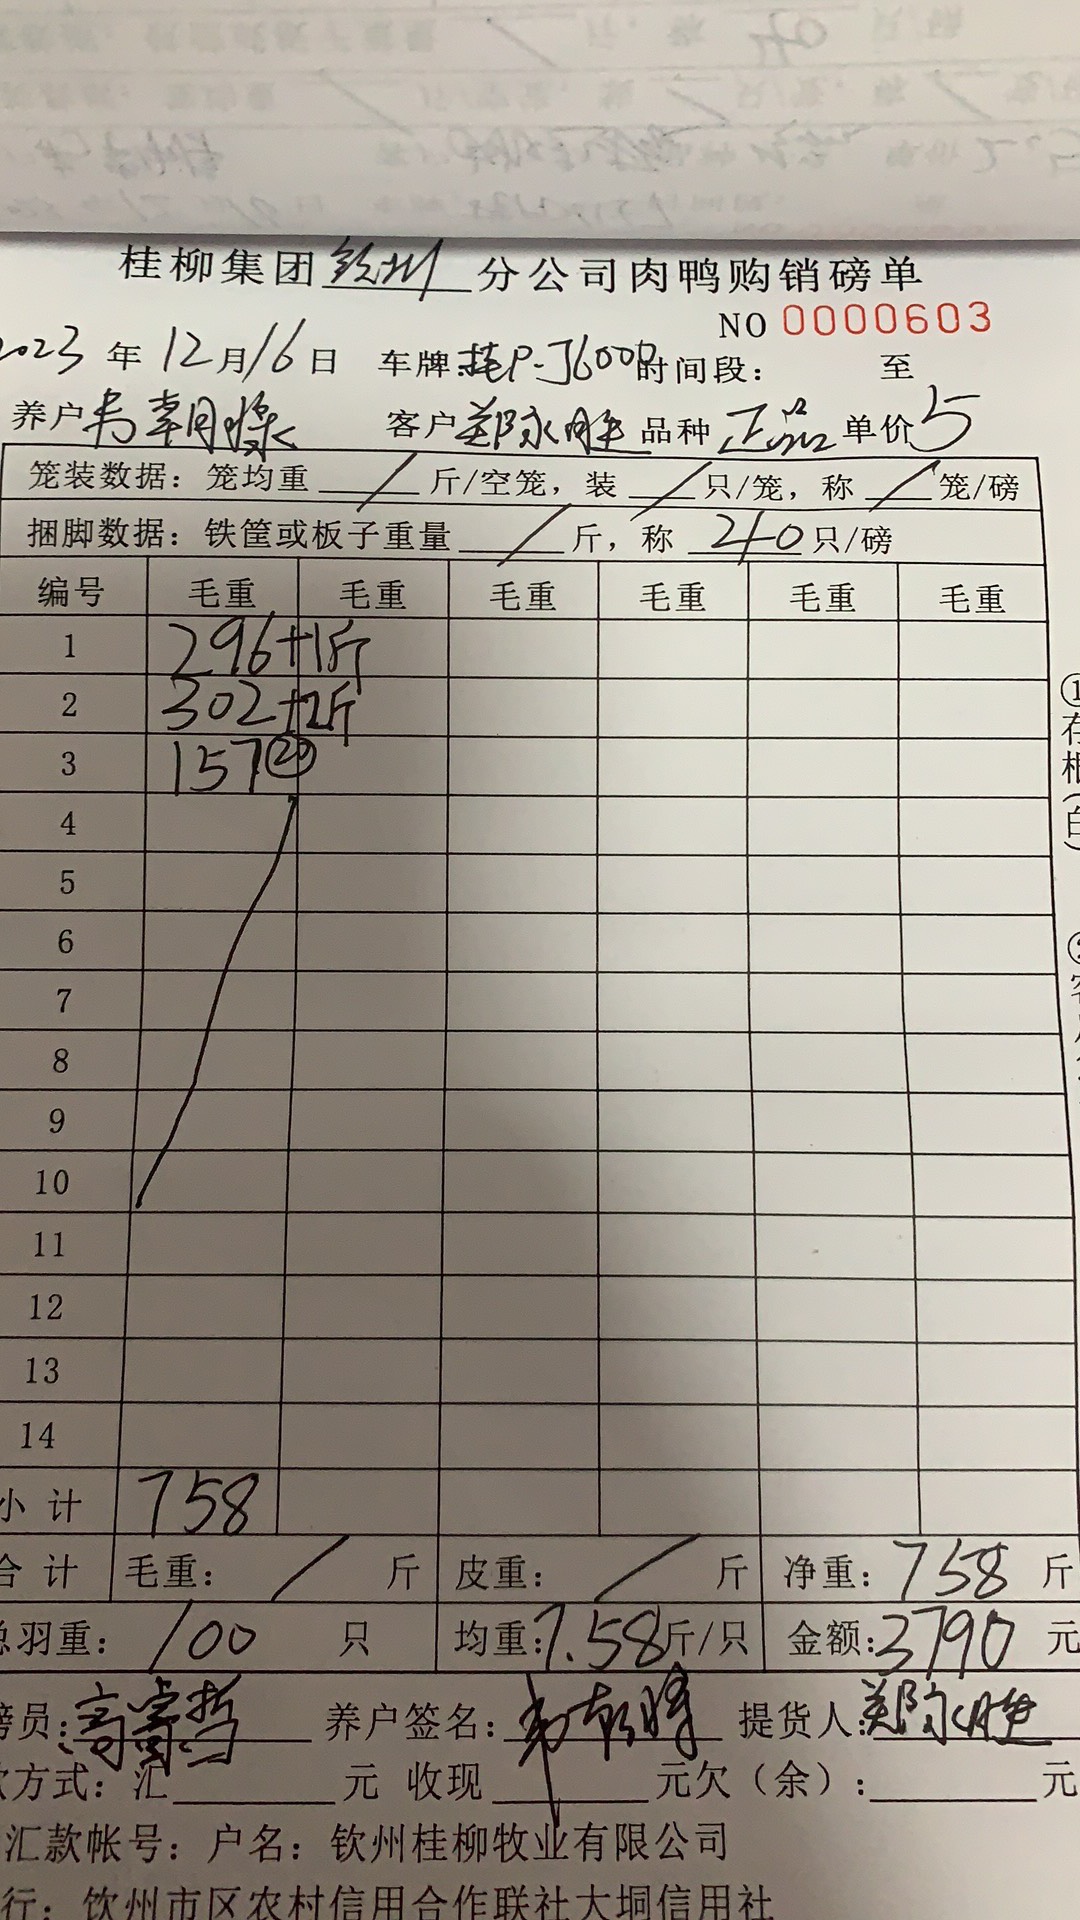 桂柳集团钦州分公司肉鸭购销磅单
NO 0000603
2023年12月16日 车牌:桂P-J6000 时间段: 至
养户韦朝 客户郑永胜 品种正品 单价5
笼装数据:笼均重/斤/空笼,装/只/笼,称/笼/磅
捆脚数据:铁筐或板子重量/斤,称40只/磅
编号 毛重 毛重 毛重 毛重 毛重 毛重
1 296+1斤
2 302+2斤
3 157⑳
4
5
6
7
8
9
10
11
12
13
14
小计 758
合计 毛重:/斤 皮重:/斤 净重:758斤
总羽重:100只 均重:7.58斤/只 金额:3790元
磅员:高睿哲 养户签名:韦朝 提货人:郑永胜
款方式:汇 元 收现 元欠(余): 元
汇款帐号:户名:钦州桂柳牧业有限公司
行:钦州市区农村信用合作联社大垌信用社
①存根(白)
②客